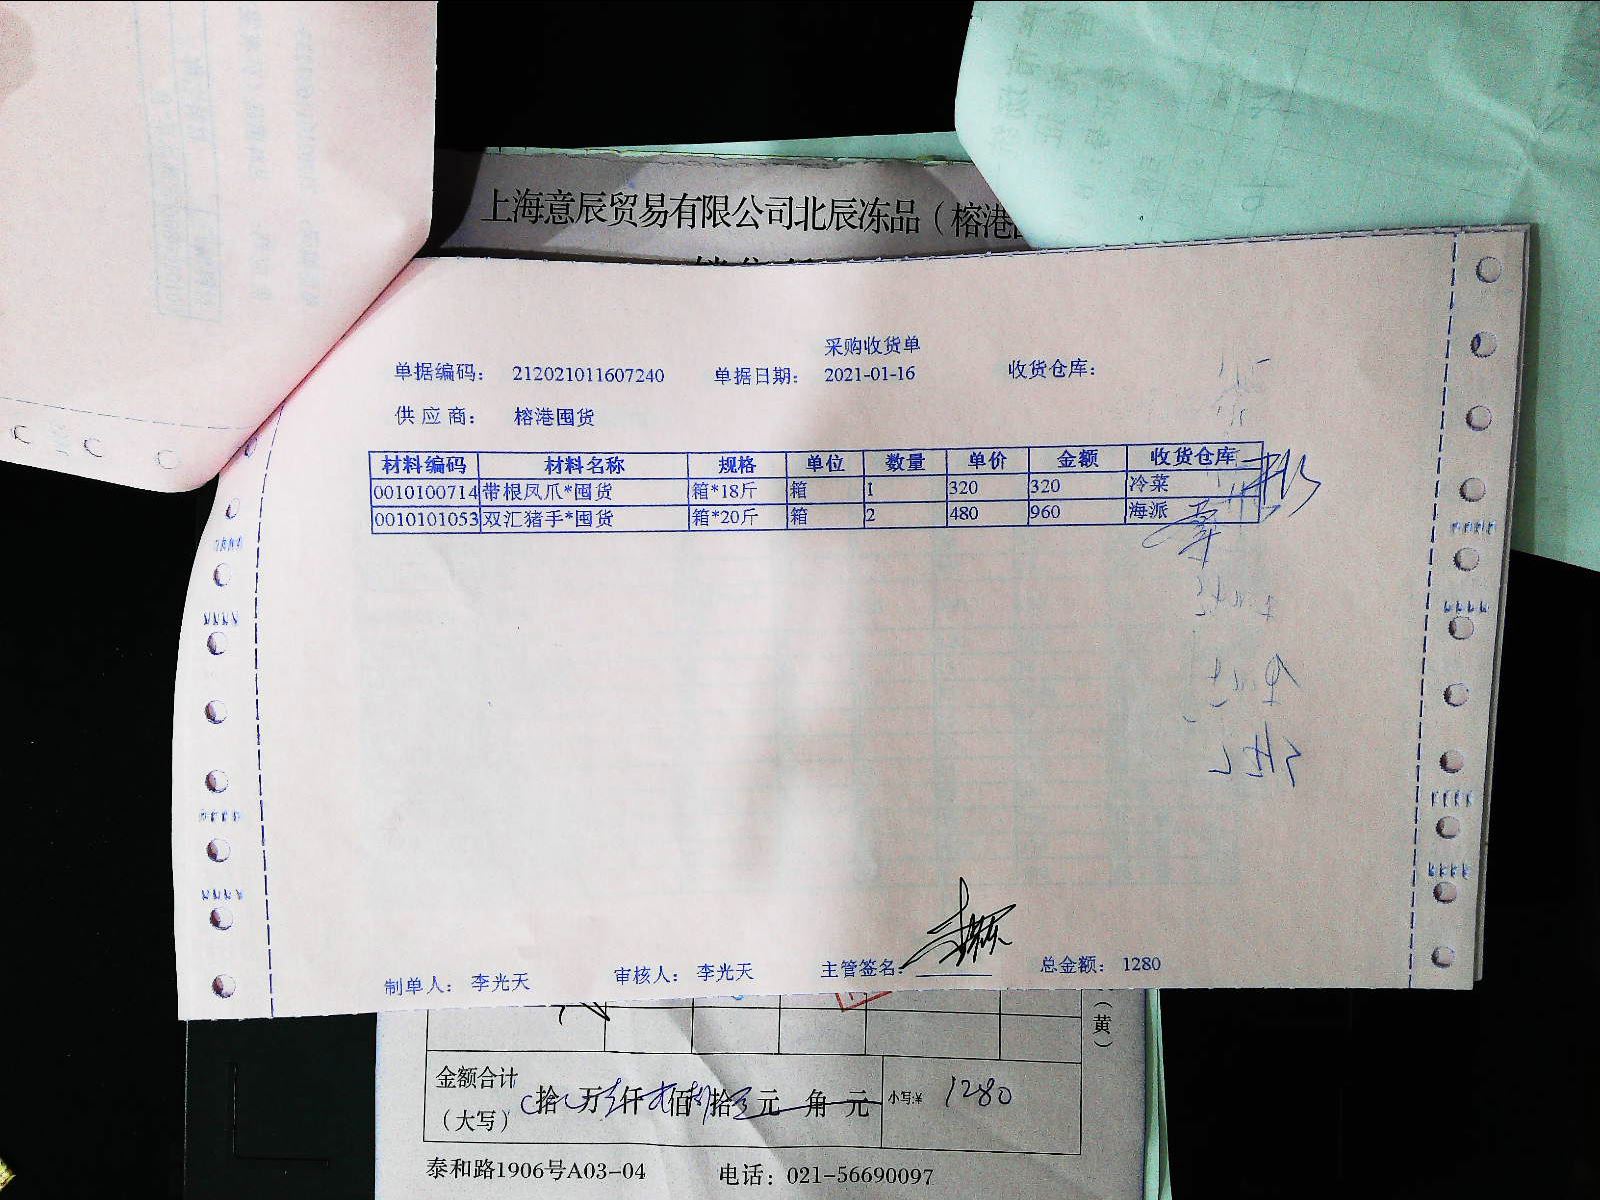 上海意辰贸易有限公司北辰冻品（榕港
采购收货单
单据编码： 212021011607240 单据日期： 2021-01-16 收货仓库：
供应商： 榕港囤货
材料编码 材料名称 规格 单位 数量 单价 金额 收货仓库
0010100714 带根凤爪*囤货 箱*18斤 箱 1 320 320 冷菜
0010101053 双汇猪手*囤货 箱*20斤 箱 2 480 960 海派
制单人： 李光天 审核人： 李光天 主管签名： 总金额： 1280
（黄）
金额合计（大写） 拾 万 仟 佰 拾 元 角 元 小写:¥ 1280
泰和路1906号A03-04 电话：021-56690097